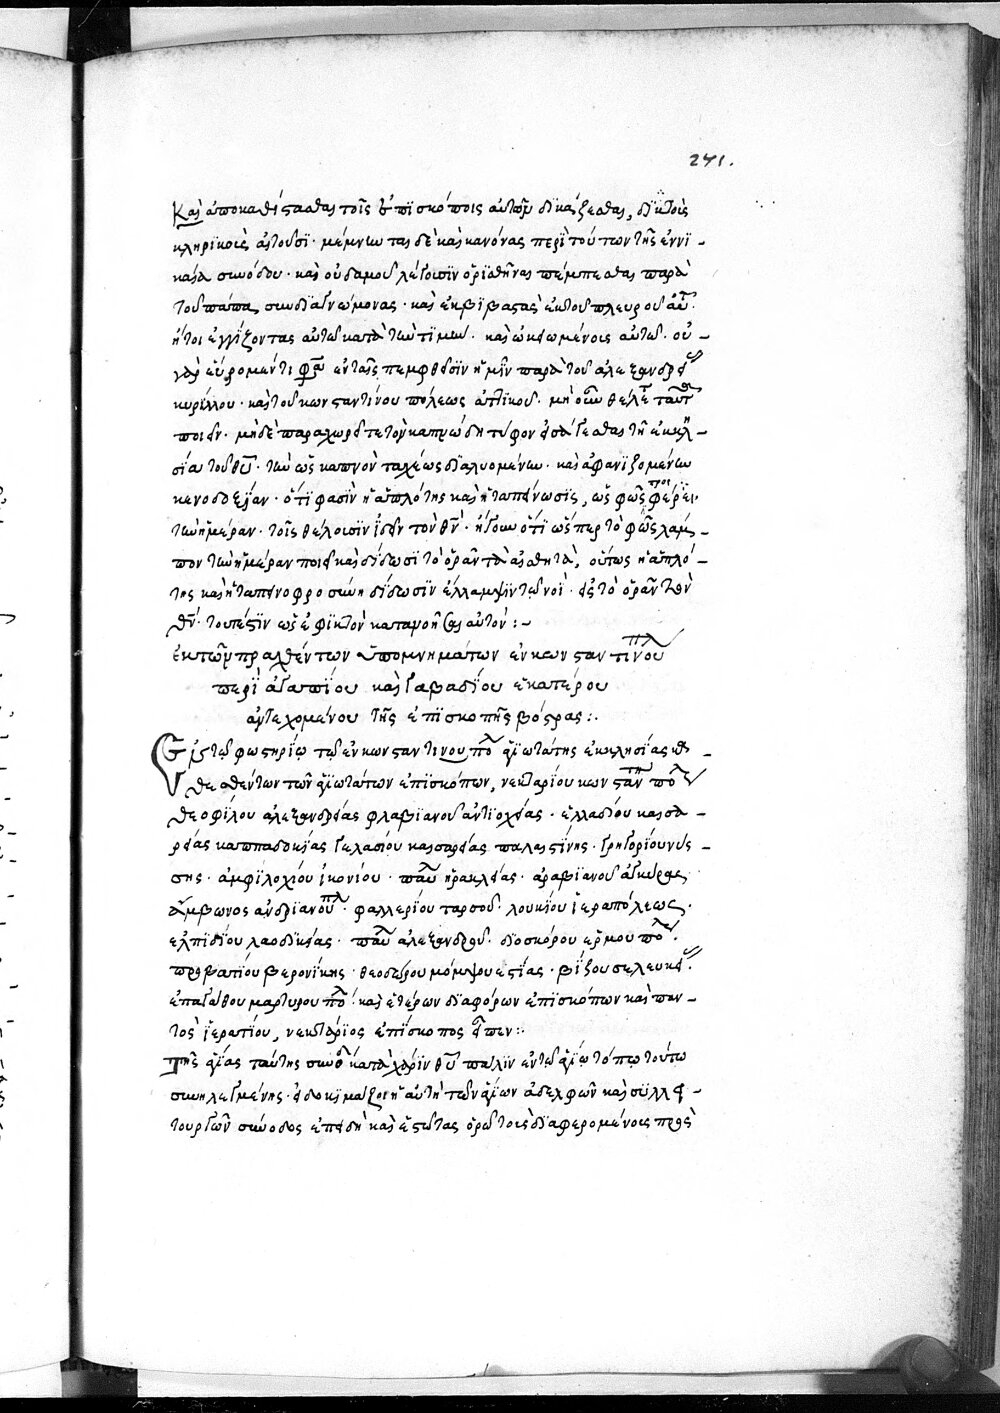 241.
καὶ ἀποκαθίστασθαι τοῖς ἐπισκόποις αὐτῶν δικάζεσθαι, δὶ τοὺς
κληρικοὺς αἰτοῦσι· μέμνηνται δὲ καὶ κανόνας περὶ τούτων τῆς ἐν νι-
καίᾳ συνόδου· καὶ οὐδαμοῦ λέγουσιν ὁρισθῆναι πέμπεσθαι παρὰ
τοῦ πάπα συνδιαγνώμονας· καὶ ἐκβιβαστὰς ἐκ τοῦ πλευροῦ αὐτ
ἤτοι ἐγγίζοντας αὐτῷ κατὰ τὴν τιμήν· καὶ ὠκειωμένους αὐτῷ· οὐ-
γὰρ εὕρομέν τι φασὶ ἐν τοῖς πεμφθεῖσιν ἡμῖν παρὰ τοῦ ἀλεξανδρεί
κυρίλλου· καὶ τοῦ κωνσταντίνου πόλεως ἀττικοῦ· μὴ οὖν θελε ταῦτ
ποιεῖν· μηδὲ παραχωρεῖτε τὸν καπνώδη τύφον εἰσάγεσθαι τῇ ἐκκλη-
σίᾳ τοῦ θῦ· τὸν ὡς καπνὸν ταχέως διαλυόμενον· καὶ ἀφανιζομένην
κενοδοξίαν· ὅτι φασὶν ἡ ἁπλότης καὶ ἡ ταπείνωσις, ὡς φῶς προσφέρει
τὴν ἡμέραν· τοῖς θέλουσιν ἰδεῖν τὸν θν· ἤγουν ὅτι ὥσπερ τὸ φῶς λάμ-
πον τὴν ἡμέραν ποιεῖ καὶ δίδωσι τὸ ὁρᾶν τὰ αἰσθητὰ, οὕτως ἡ ἁπλό-
της καὶ ἡ ταπεινοφροσύνη δίδωσιν ἔλλαμψιν τῷ νοῒ· εἰς τὸ ὁρᾶν τὸν
θν· τουτέστιν ὡς ἐφικτὸν κατανοῆσαι αὐτόν:-
ἐκ τῶν πραχθέντων ὑπομνημάτων ἐν κωνσταντίνου πλ
περὶ ἀγαπίου καὶ γαβαδίου ἑκατέρου
ἀντεχομένου τῆς ἐπισκοπῆς βόστρας:.
Ἐν τῷ φωτηρίῳ τῷ ἐν κωνσταντινουπολ ἁγιωτάτης ἐκκλησίας
θεσθέντων τῶν ἁγιωτάτων ἐπισκόπων, νεκταρίου κωνσταν πολ
θεοφίλου ἀλεξανδρείας φλαβιανοῦ ἀντιοχείας· ἑλλαδίου καισα-
ρείας καππαδοκίας γελασίου καισαρείας παλαιστίνης· γρηγορίου νύσ-
σης· ἀμφιλοχίου ἰκονίου· παύ ἡρακλείας· ἀραβιανοῦ ἀγκύρας
ἄμβωνος ἀνδριανου πλ· φαλλερίου ταρσοῦ· λουκίου ἱεραπόλεως·
ἐλπιδίου λαοδικείας· παύ ἀλεξανδροῦ· διοσκόρου ἑρμουπολ·
προβατίου βερονίκης· θεοδώρου μομψουεστίας· βίζου σελευκεί·
ἐπαγάθου μαρτυρουπολ· καὶ ἑτέρων διαφόρων ἐπισκόπων καὶ παν-
τὸς ἱερατίου, νεκτάριος ἐπίσκοπος εἶπεν:·
Τῆς ἁγίας ταύτης συνοδ κατὰ χάριν θῦ πάλιν ἐν τῷ ἁγίῳ τόπῳ τούτῳ
συνηλεγμένης· εἰ δοκιμάζοι ἡ αὐτὴ τῶν ἁγίων ἀδελφῶν καὶ συλλει-
τουργῶν σύνοδος ἐπειδὴ καὶ ἑστῶτας ὁρῶ τοὺς διαφερομένους πρὸς